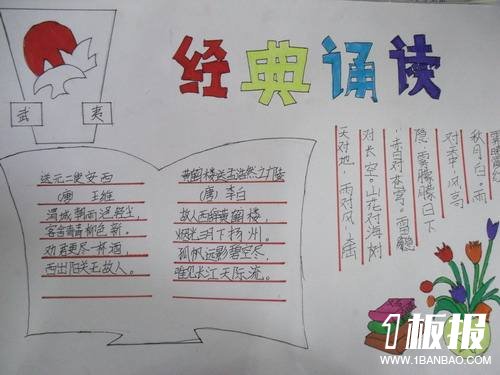 经典诵读
武 夷
送元二使安西
(唐) 王维
渭城朝雨浥轻尘,
客舍青青柳色新,
劝君更尽一杯酒,
西出阳关无故人。
黄鹤楼送孟浩然之广陵
(唐) 李白
故人西辞黄鹤楼,
烟花三月下扬州。
孤帆远影碧空尽,
唯见长江天际流。
天对地,雨对风,大陆
对长空。山花对海树
,赤日对苍穹。雷隐
隐,雾朦朦。日下
对天中。风高
秋月白,雨
1板报
WWW.1BANBAO.COM